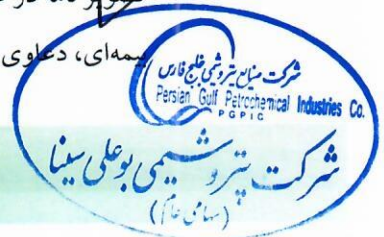 بیمه‌ای، دعاوی
شرکت صنایع پتروشیمی خلیج فارس
Persian Gulf Petrochemical Industries Co.
PGPIC
شرکت پتروشیمی بوعلی سینا
(سهامی عام)